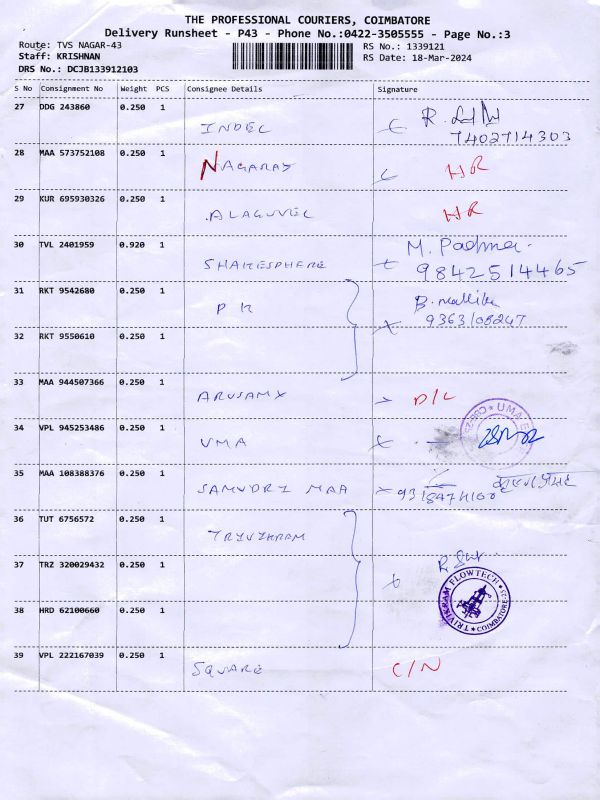 THE PROFESSIONAL COURIERS, COIMBATORE
Delivery Runsheet - P43 - Phone No.:0422-3505555 - Page No.:3
Route: TVS NAGAR-43 RS No.: 1339121
Staff: KRISHNAN RS Date: 18-Mar-2024
DRS No.: DCJB133912103
S No Consignment No Weight PCS Consignee Details Signature
27 DDG 243860 0.250 1 INDEL
7402714303
28 MAA 573752108 0.250 1 NAGARAY HR
29 KUR 695930326 0.250 1 ALAGUVEL HR
30 TVL 2401959 0.920 1 SHAKESPHERE M. Padma
9842514465
31 RKT 9542680 0.250 1 PK B. mallika
9363108247
32 RKT 9550610 0.250 1
33 MAA 944507366 0.250 1 ARUSAMY D/L
34 VPL 945253486 0.250 1 UMA
35 MAA 108388376 0.250 1 SAMUDRI MAA
36 TUT 6756572 0.250 1 TRIVIKRAM
37 TRZ 320029432 0.250 1
TRIVIKRAM FLOWTECH COIMBATORE-35
38 HRD 62100660 0.250 1
39 VPL 222167039 0.250 1 SQUARE C/N